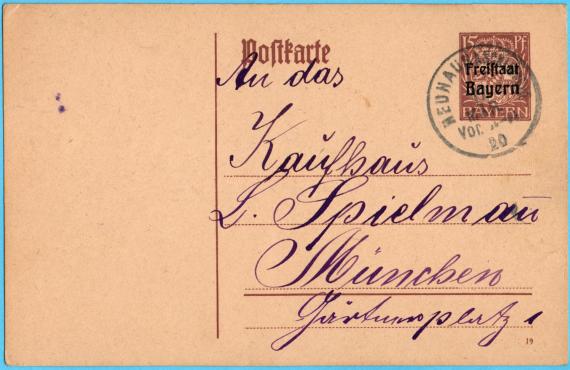 Postkarte
15 Pf
Freistaat
Bayern
BAYERN
Vor.
20
An das
Kaufhaus
L. Spielmañ
München
Gärtnerplatz 1
19